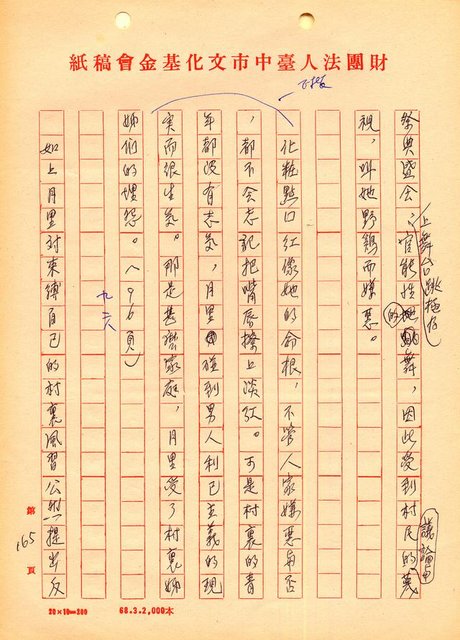 財團法人臺中市文化基金會稿紙
不接
上舞台跳
祭典盛會，官能性的舞，因此受到村民的
議論
視，叫她野鷄而嫌惡。
化粧點口紅像她的命根，不管人家嫌惡與否
，都不会忘記把嘴唇擦上淡紅。可是村裏的青
年都沒有志氣，月里碰到男人利己主義的現
実而很生氣。那是甚麼家庭，月里受了村裏姊
姊們的埋怨。（96頁）
九六
如上月里对束縛自己的村裏風習公然提出反
第165頁
20×10=200
68.3.2,000本